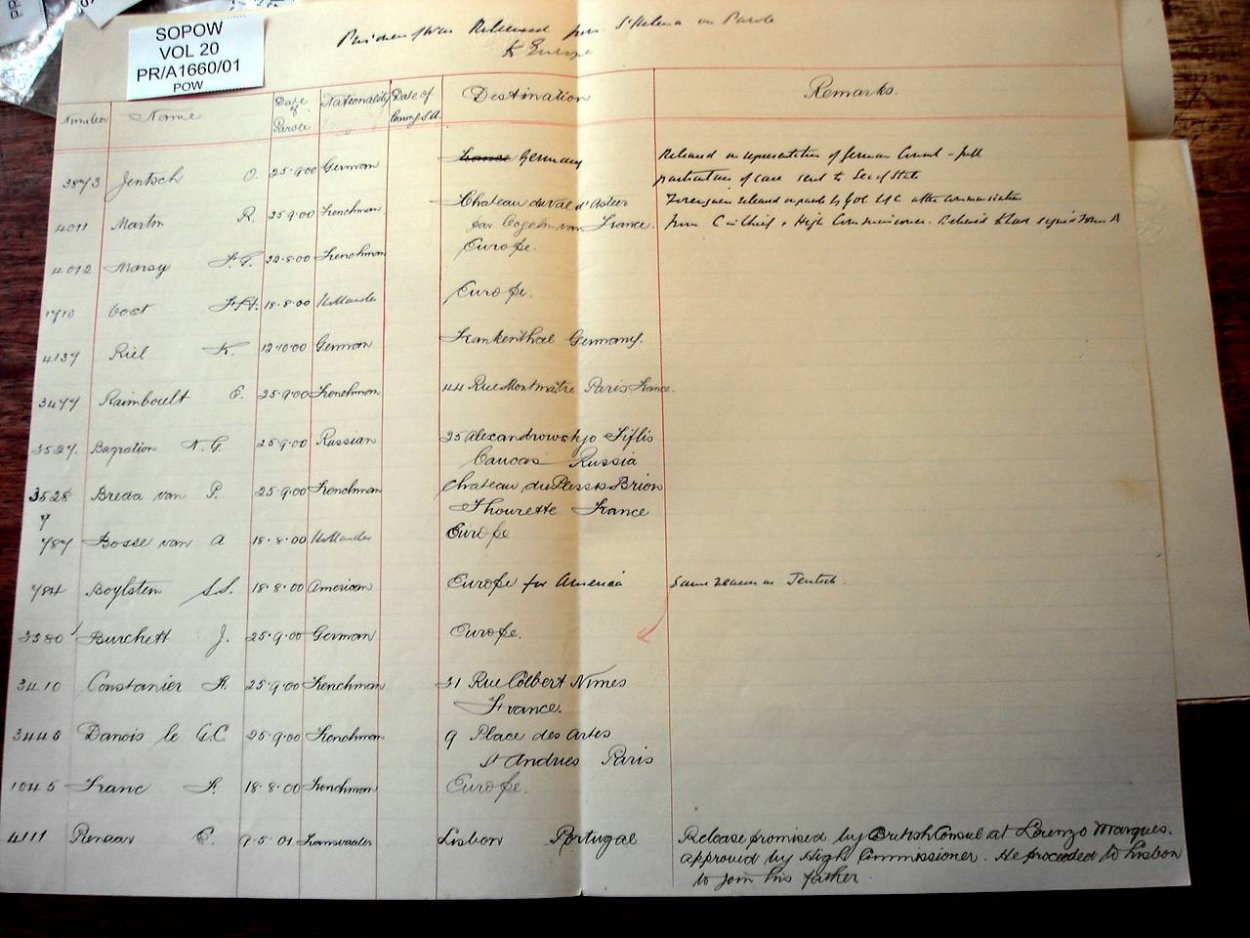 SOPOW
VOL 20
PR/A1660/01
POW
Prisoners of War Released from St Helena on Parole
to Europe
Number Name Date of Parole Nationality Date of Destination Remarks.
3873 Jentsch O. 25.9.00 German France Germany Released on representation of German Consul - full
particulars of case sent to Sec of State
4011 Martin R. 25.9.00 Frenchman Chateau du Val d'Astier Foreigner released on parole by GOC after communication
par Cogolin var France. from C in Chief & High Commissioner. Believed to have signed Form A
4092 Marsy 22.8.00 Frenchman Europe.
1710 Oost 18.8.00 Hollander Europe.
4137 Riel K. 12.10.00 German Frankenthal Germany.
3477 Raimboult E. 25.9.00 Frenchman 44 Rue Montmatre Paris France.
3527. Bagration N.G. 25.9.00 Russian 25 Alexandrowskjo Tiflis
Caucas Russia
3528 Breda van P. 25.9.00 Frenchman Chateau du Plessis Brion
Thourette France
787 Bosse van A 18.8.00 Hollander Europe
784 Boylsten S.S. 18.8.00 American Europe for America Same reason as Jentsch.
3380 Burchett J. 25.9.00 German Europe.
3410 Constanier A. 25.9.00 Frenchman 31 Rue Colbert Nimes
France.
3446 Danois le G.C 25.9.00 Frenchman 9 Place des Artes
St Andries Paris
1045 Franc F. 18.8.00 Frenchman Europe.
4111 Renaar C. 9.5.01 Transvaaler Lisbon Portugal Release promised by British Consul at Lorenzo Marques.
approved by High Commissioner. He proceeded to Lisbon
to join his father.